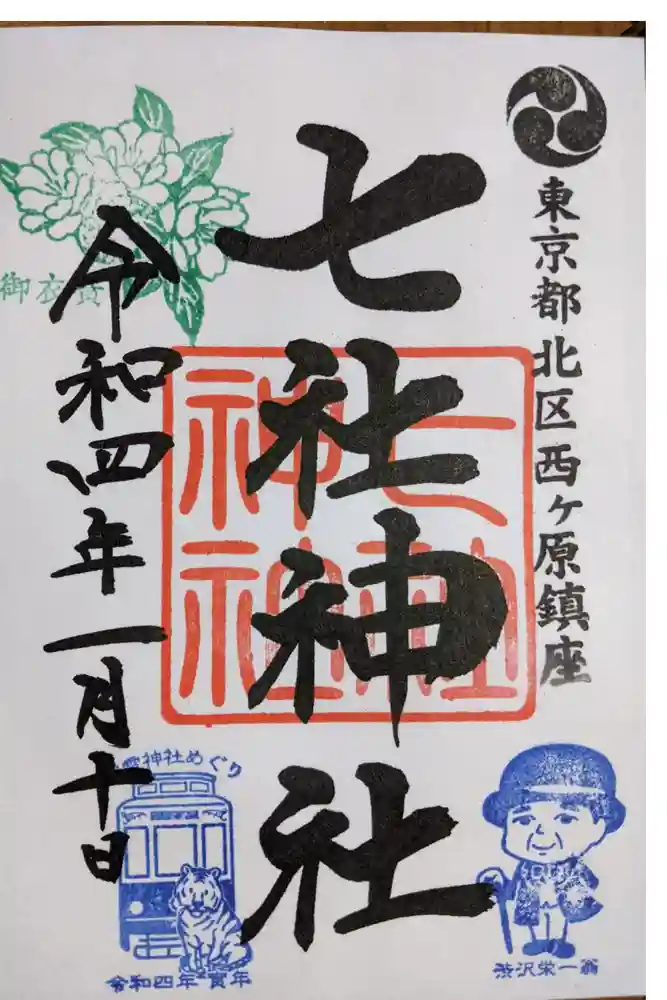 東京都北区西ヶ原鎮座
七社神社
七社
神社
令和四年一月十日
御衣黄
神社めぐり
令和四年 寅年
渋沢栄一翁